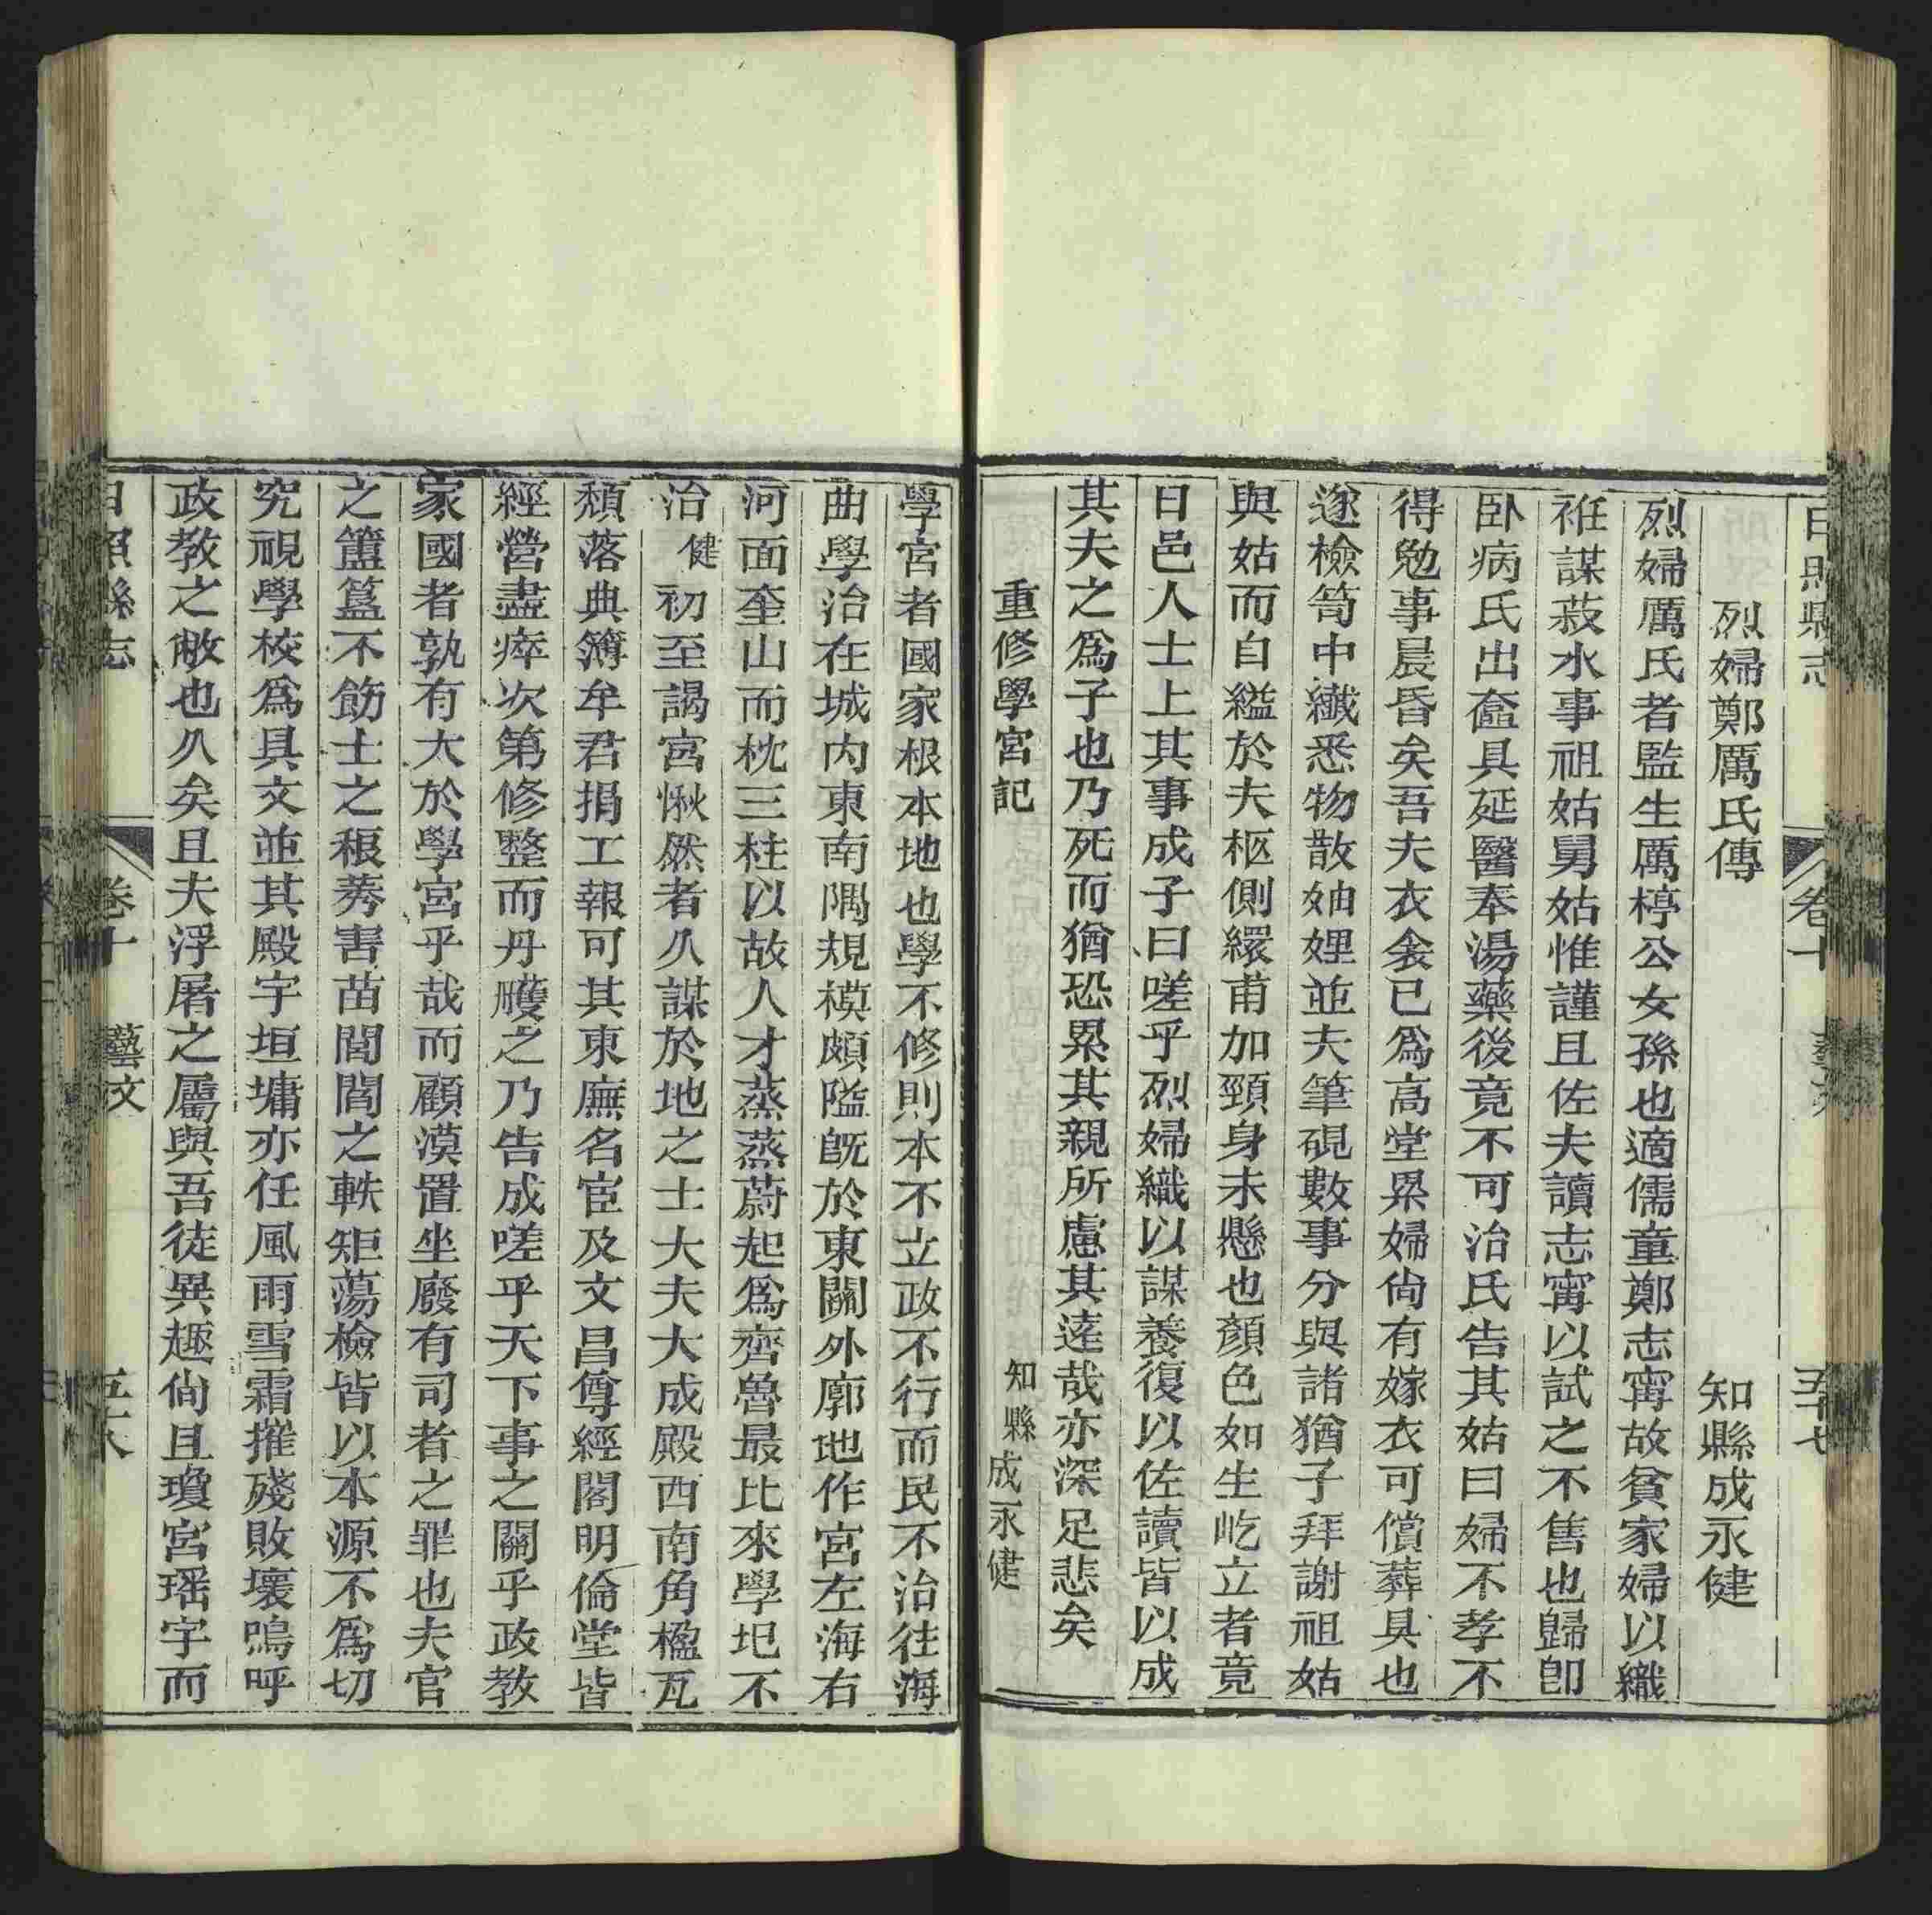 日照縣志 卷十 藝文 五十七
烈婦鄭厲氏傳 知縣成永健
烈婦厲氏者監生厲楟公女孫也適儒童鄭志寗故貧家婦以織
袵謀菽水事祖姑舅姑惟謹且佐夫讀志寗以試之不售也歸卽
卧病氏出奩具延醫奉湯藥後竟不可治氏告其姑曰婦不孝不
得勉事晨昏矣吾夫衣衾已爲高堂累婦尙有嫁衣可償葬具也
遂檢笥中纖悉物散妯娌並夫筆硯數事分與諸猶子拜謝祖姑
與姑而自縊於夫柩側繯甫加頸身未懸也顏色如生屹立者竟
日邑人士上其事成子曰嗟乎烈婦織以謀養復以佐讀皆以成
其夫之爲子也乃死而猶恐累其親所慮其逹哉亦深足悲矣
重修學宮記 知縣成永健
學宮者國家根本地也學不修則本不立政不行而民不治往海
曲學治在城内東南隅規模頗隘旣於東關外廓地作宮左海右
河面奎山而枕三柱以故人才蒸蒸蔚起爲齊魯最比來學圯不
治健初至謁宮愀然者久謀於地之士大夫大成殿西南角楹瓦
頹落典簿牟君捐工報可其東廡名宦及文昌尊經閣明倫堂皆
經營盡瘁次第修整而丹雘之乃告成嗟乎天下事之關乎政教
家國者孰有大於學宮乎哉而顧漠置坐廢有司者之罪也夫官
之簠簋不飭士之稂莠害苗閭閻之軼矩蕩檢皆以本源不爲切
究視學校爲具文並其殿宇垣墉亦任風雨雪霜摧殘敗壞嗚呼
政教之敝也久矣且夫浮屠之屬與吾徒異趣尙且瓊宮瑶宇而
日照縣志 卷十 藝文 五十八